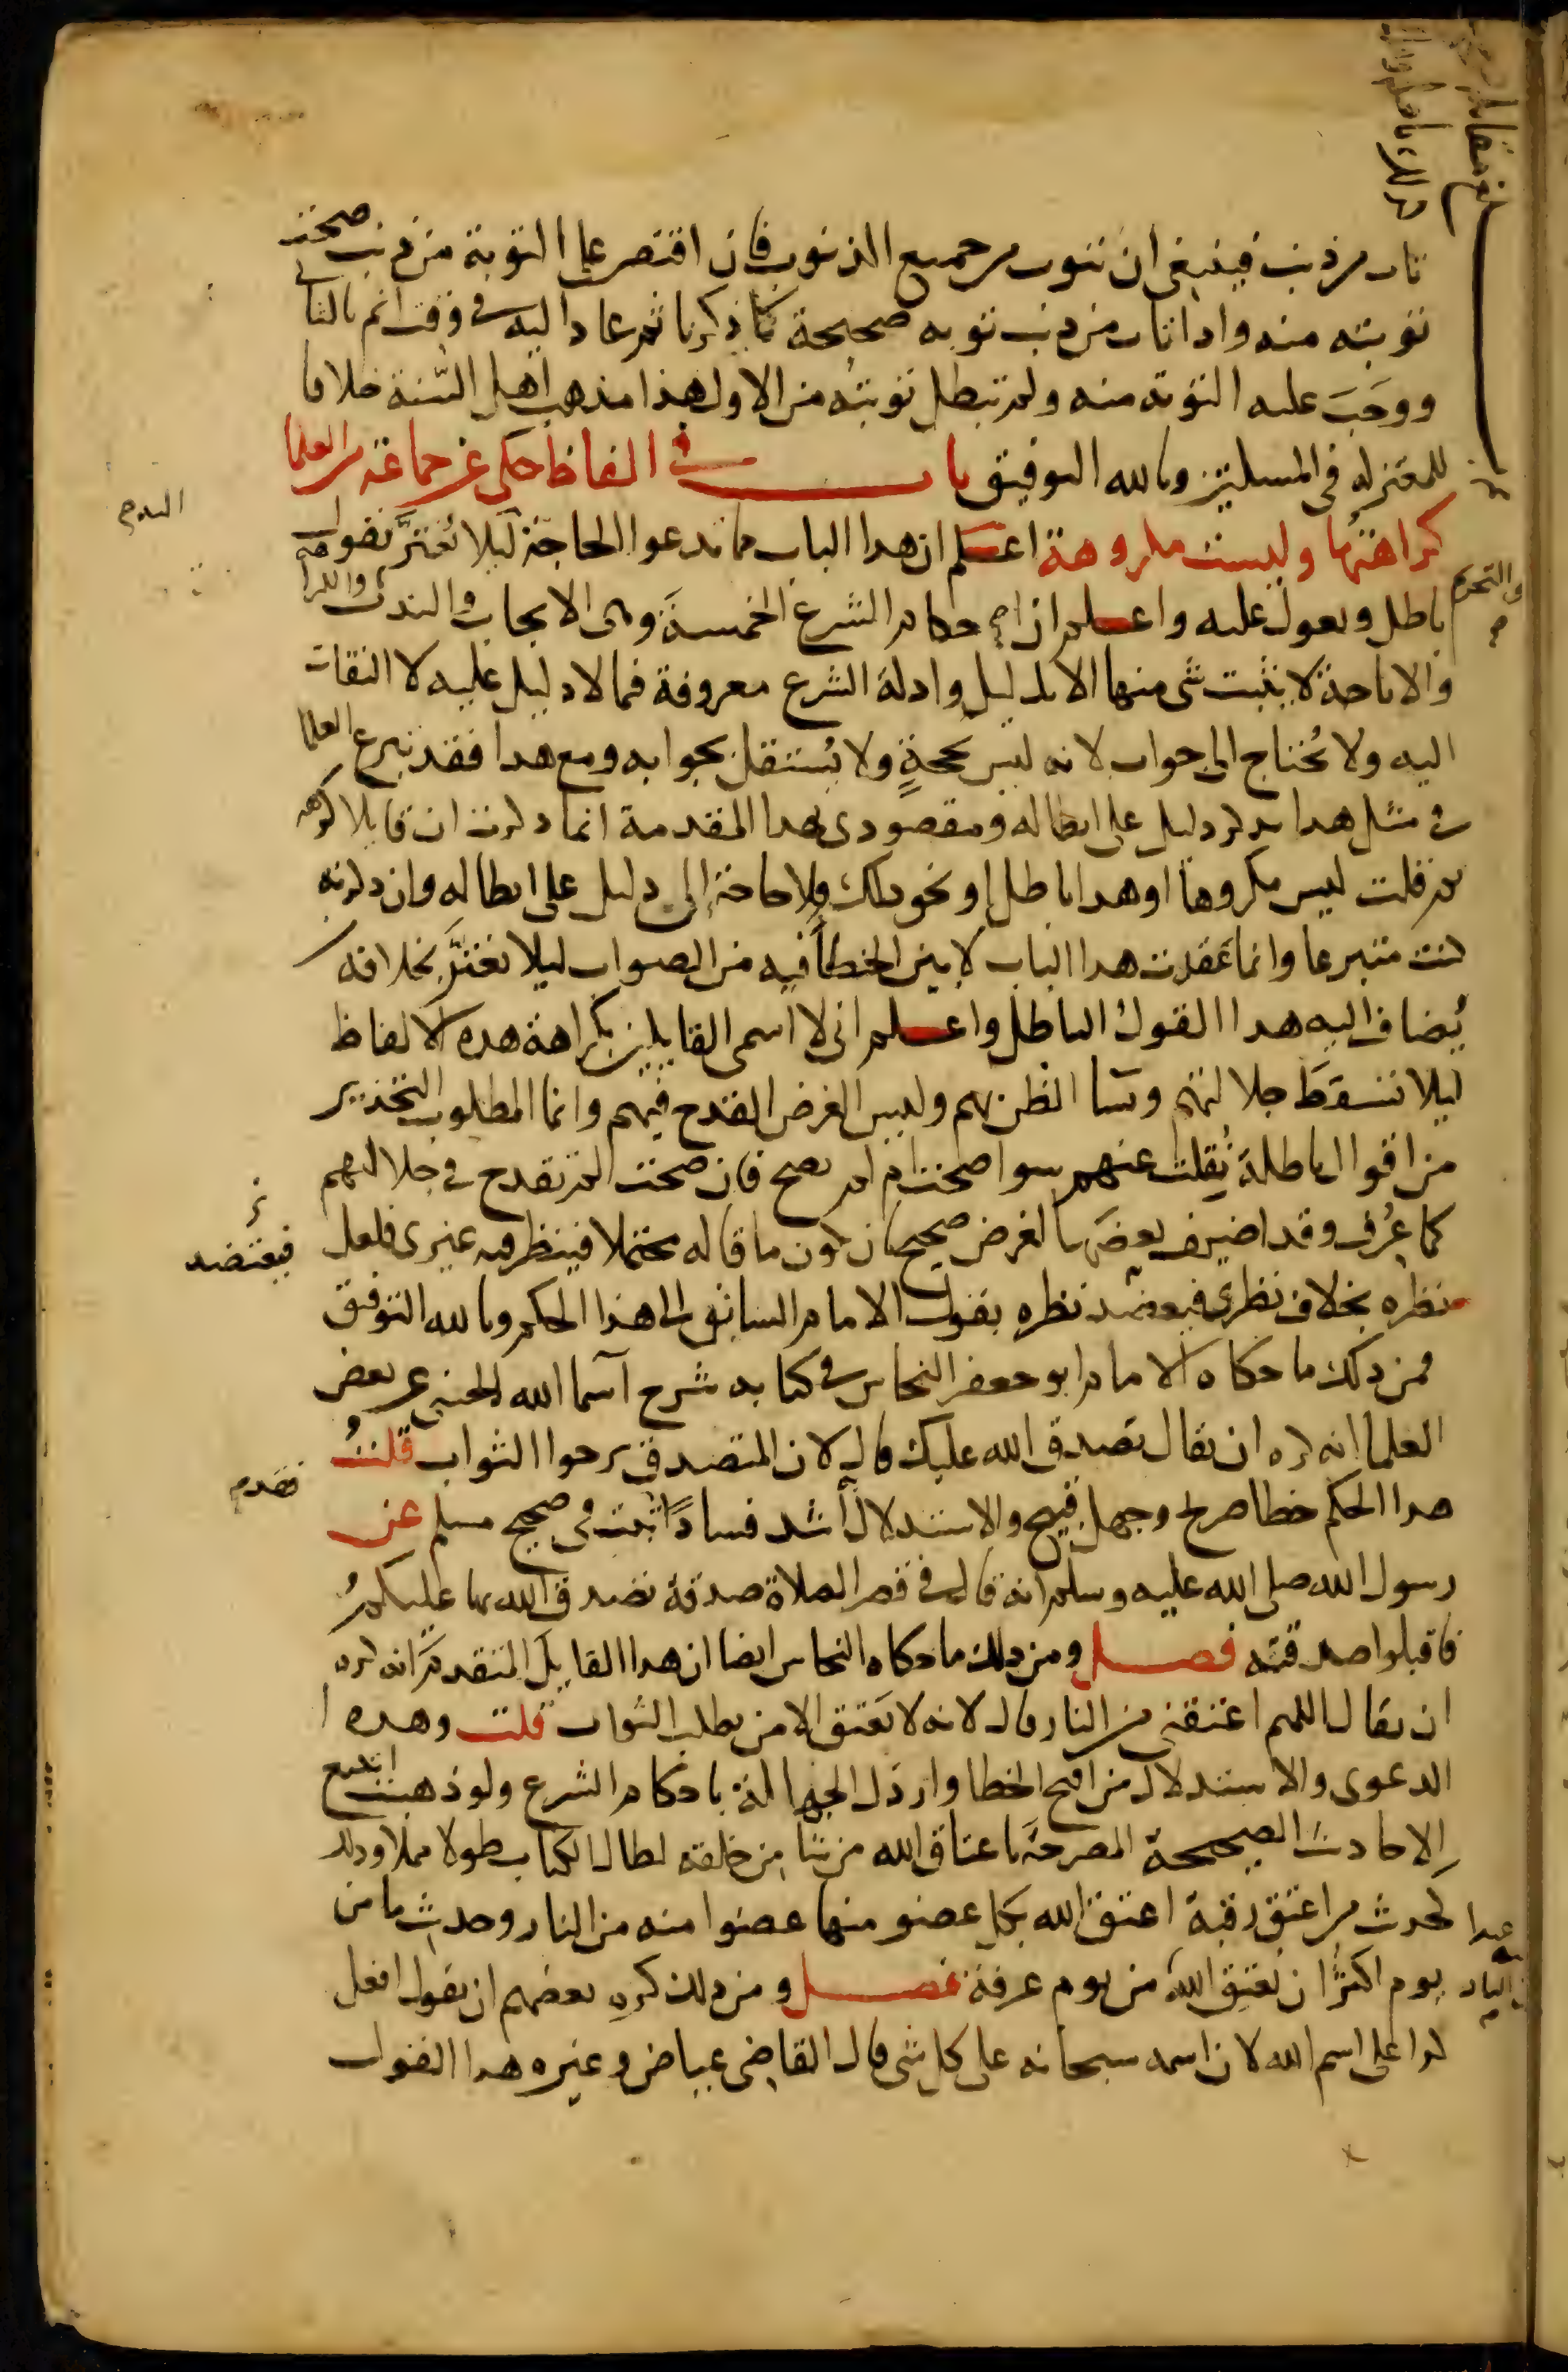 تاب من ذنب فينبغي ان يتوب من جميع الذنوب فان اقتصر على التوبة من ذنب صحت
توبته منه واذا تاب من ذنب توبه صحيحة كما ذكرنا ثم عاد اليه في وقت اثم بالثاني
ووجَبَ عليه التوبة منه ولم تبطل توبتُه من الاول هذا مذهب اهل السّنة خلافا
للمعتزله في المسلتين وبالله التوفيق باب في الفاظ حكى عن جماعة من العلما
كراهتُها وليست مكروهة اعلم ان هذا الباب مما تدعوا الحاجة ليلا يُغترَّ بقول
باطل ويعول عليه واعلم ان احكام الشرع الخمسةَ وهي الايجاب والندب والكراهه
والتحريم
والاباحة لا يثبت شي منها الا بدليل وادلة الشرع معروفة فما لا دليل عليه لا التفات
اليه ولا يُحتاج الى جواب لانه ليس بحجةٍ ولا يُشتغل بجوابه ومع هذا فقد تبرع العلما
في مثل هذا بذكر دليل على ابطاله ومقصودى بهذا المقدمة انما ذكرت ان قايلا كرهه
ثم قلت ليس مكروها او هذا باطل او نحو ذلك فلا حاجة إلى دليل على ابطاله وان ذكرته
كنت متبرعا وانما عقدت هذا الباب لابين الخطأ فيه من الصواب ليلا يغترَّ بجلالة
يُضاف اليه هذا القول الباطل واعلم اني لا اسمى القايلين بكراهة هذه الالفاظ
ليلا تسقطَ جلالتهم ويسا الظن بهم وليس الغرض القدح فيهم وانما المطلوب التحذير
من اقوال باطلة نُقلت عنهم سوا صحت ام لم تصح فان صحت لم تقدح في جلالتهم
كما عُرف وقد اضيف بعضَها لغرض صحيح بان يكون ما قاله محتملا فينظر فيه غيرى فلعل
نظره بخلاف نظرى فيعتضد نظره بقول الامام السابق الى هذا الحكم وبالله التوفيق
فيعتضد
فمن ذلك ما حكاه الامام ابو جعفر النحاس في كتابه شرح اسما الله الحسنى عن بعض
العلما انه كره ان يقال تصدق الله عليك قال لان المتصدق يرجوا الثواب قلتُ
هذا الحكم خطا صريح وجهل قبيح والاستدلال أشد فسادًا ثبت في صحيح مسلم عن
رسول الله صلى الله عليه وسلم انه قال في قصر الصلاة صدقة تصدق الله بها عليكمُ
فاقبلوا صدقته فصل ومن ذلك ما حكاه النحاس ايضا ان هذا القايل المتقدم انه كره
ان يقال اللهم اعتقني من النار قال لانه لا يَعتق الا من يطلب الثواب قلت وهذه
الدعوى والاستدلال من اقبح الخطا وارذل الجهالة باحكام الشرع ولو ذهبت اتتبع
الاحاديث الصحيحة المصرحة باعتاق الله من شا من خلقه لطال الكتاب طولا مملا وذلك
كحديث من اعتق رقبة اعتق الله بكل عضو منها عضوا منه من النار وحديث ما من
يوم اكثرُ ان يُعتِق اللهُ من يوم عرفة فصل ومن ذلك كره بعضهم ان يقول افعل
عبدا
من النار
كذا على اسم الله لان اسمه سبحانه على كل شي قال القاضي عياض وغيره هذا القول